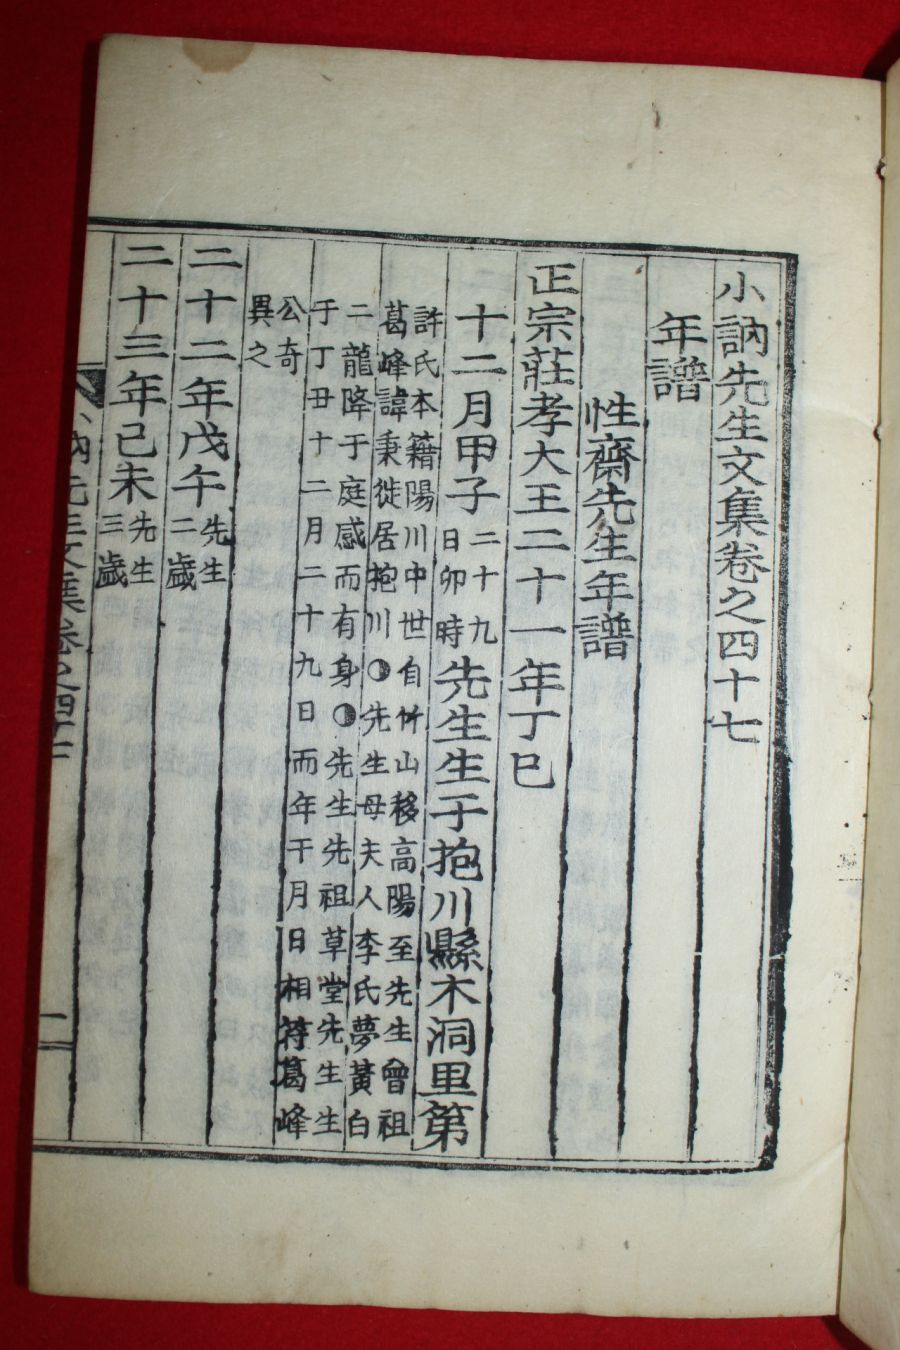 小訥先生文集卷之四十七
年譜
性齋先生年譜
正宗莊孝大王二十一年丁巳
十二月甲子二十九日卯時先生生于抱川縣木洞里第
許氏本籍陽川中世自竹山移高陽至先生曾祖
葛峰諱秉徙居抱川◑先生母夫人李氏夢黃白
二龍降于庭感而有身◑先生先祖草堂先生生
于丁丑十二月二十九日而年干月日相符葛峰
公奇
異之
二十二年戊午先生二歲
二十三年己未先生三歲
訥先生文集卷之四十七
一